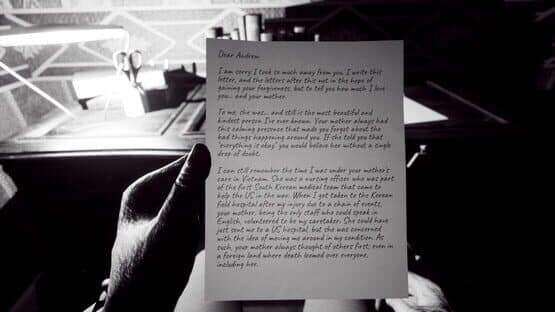 Dear Andrew
I am sorry I took so much away from you. I write this
letter, and the letters after this not in the hope of
gaining your forgiveness, but to tell you how much I love
you... and your mother.
To me, she was... and still is the most beautiful and
kindest person I've ever known. Your mother always had
this calming presence that made you forget about the
bad things happening around you. If she told you that
"everything is okay" you would believe her without a single
drop of doubt.
I can still remember the time I was under your mother's
care in Vietnam. She was a nursing officer who was part
of the first South Korean medical team that came to
help the US in the war. When I got taken to the Korean
field hospital after my injury due to a chain of events,
your mother, being the only staff who could speak in
English, volunteered to be my caretaker. She could have
just sent me to a US hospital, but she was concerned
with the idea of moving me around in my condition. As
such, your mother always thought of others first; even in
a foreign land where death loomed over everyone,
including her.